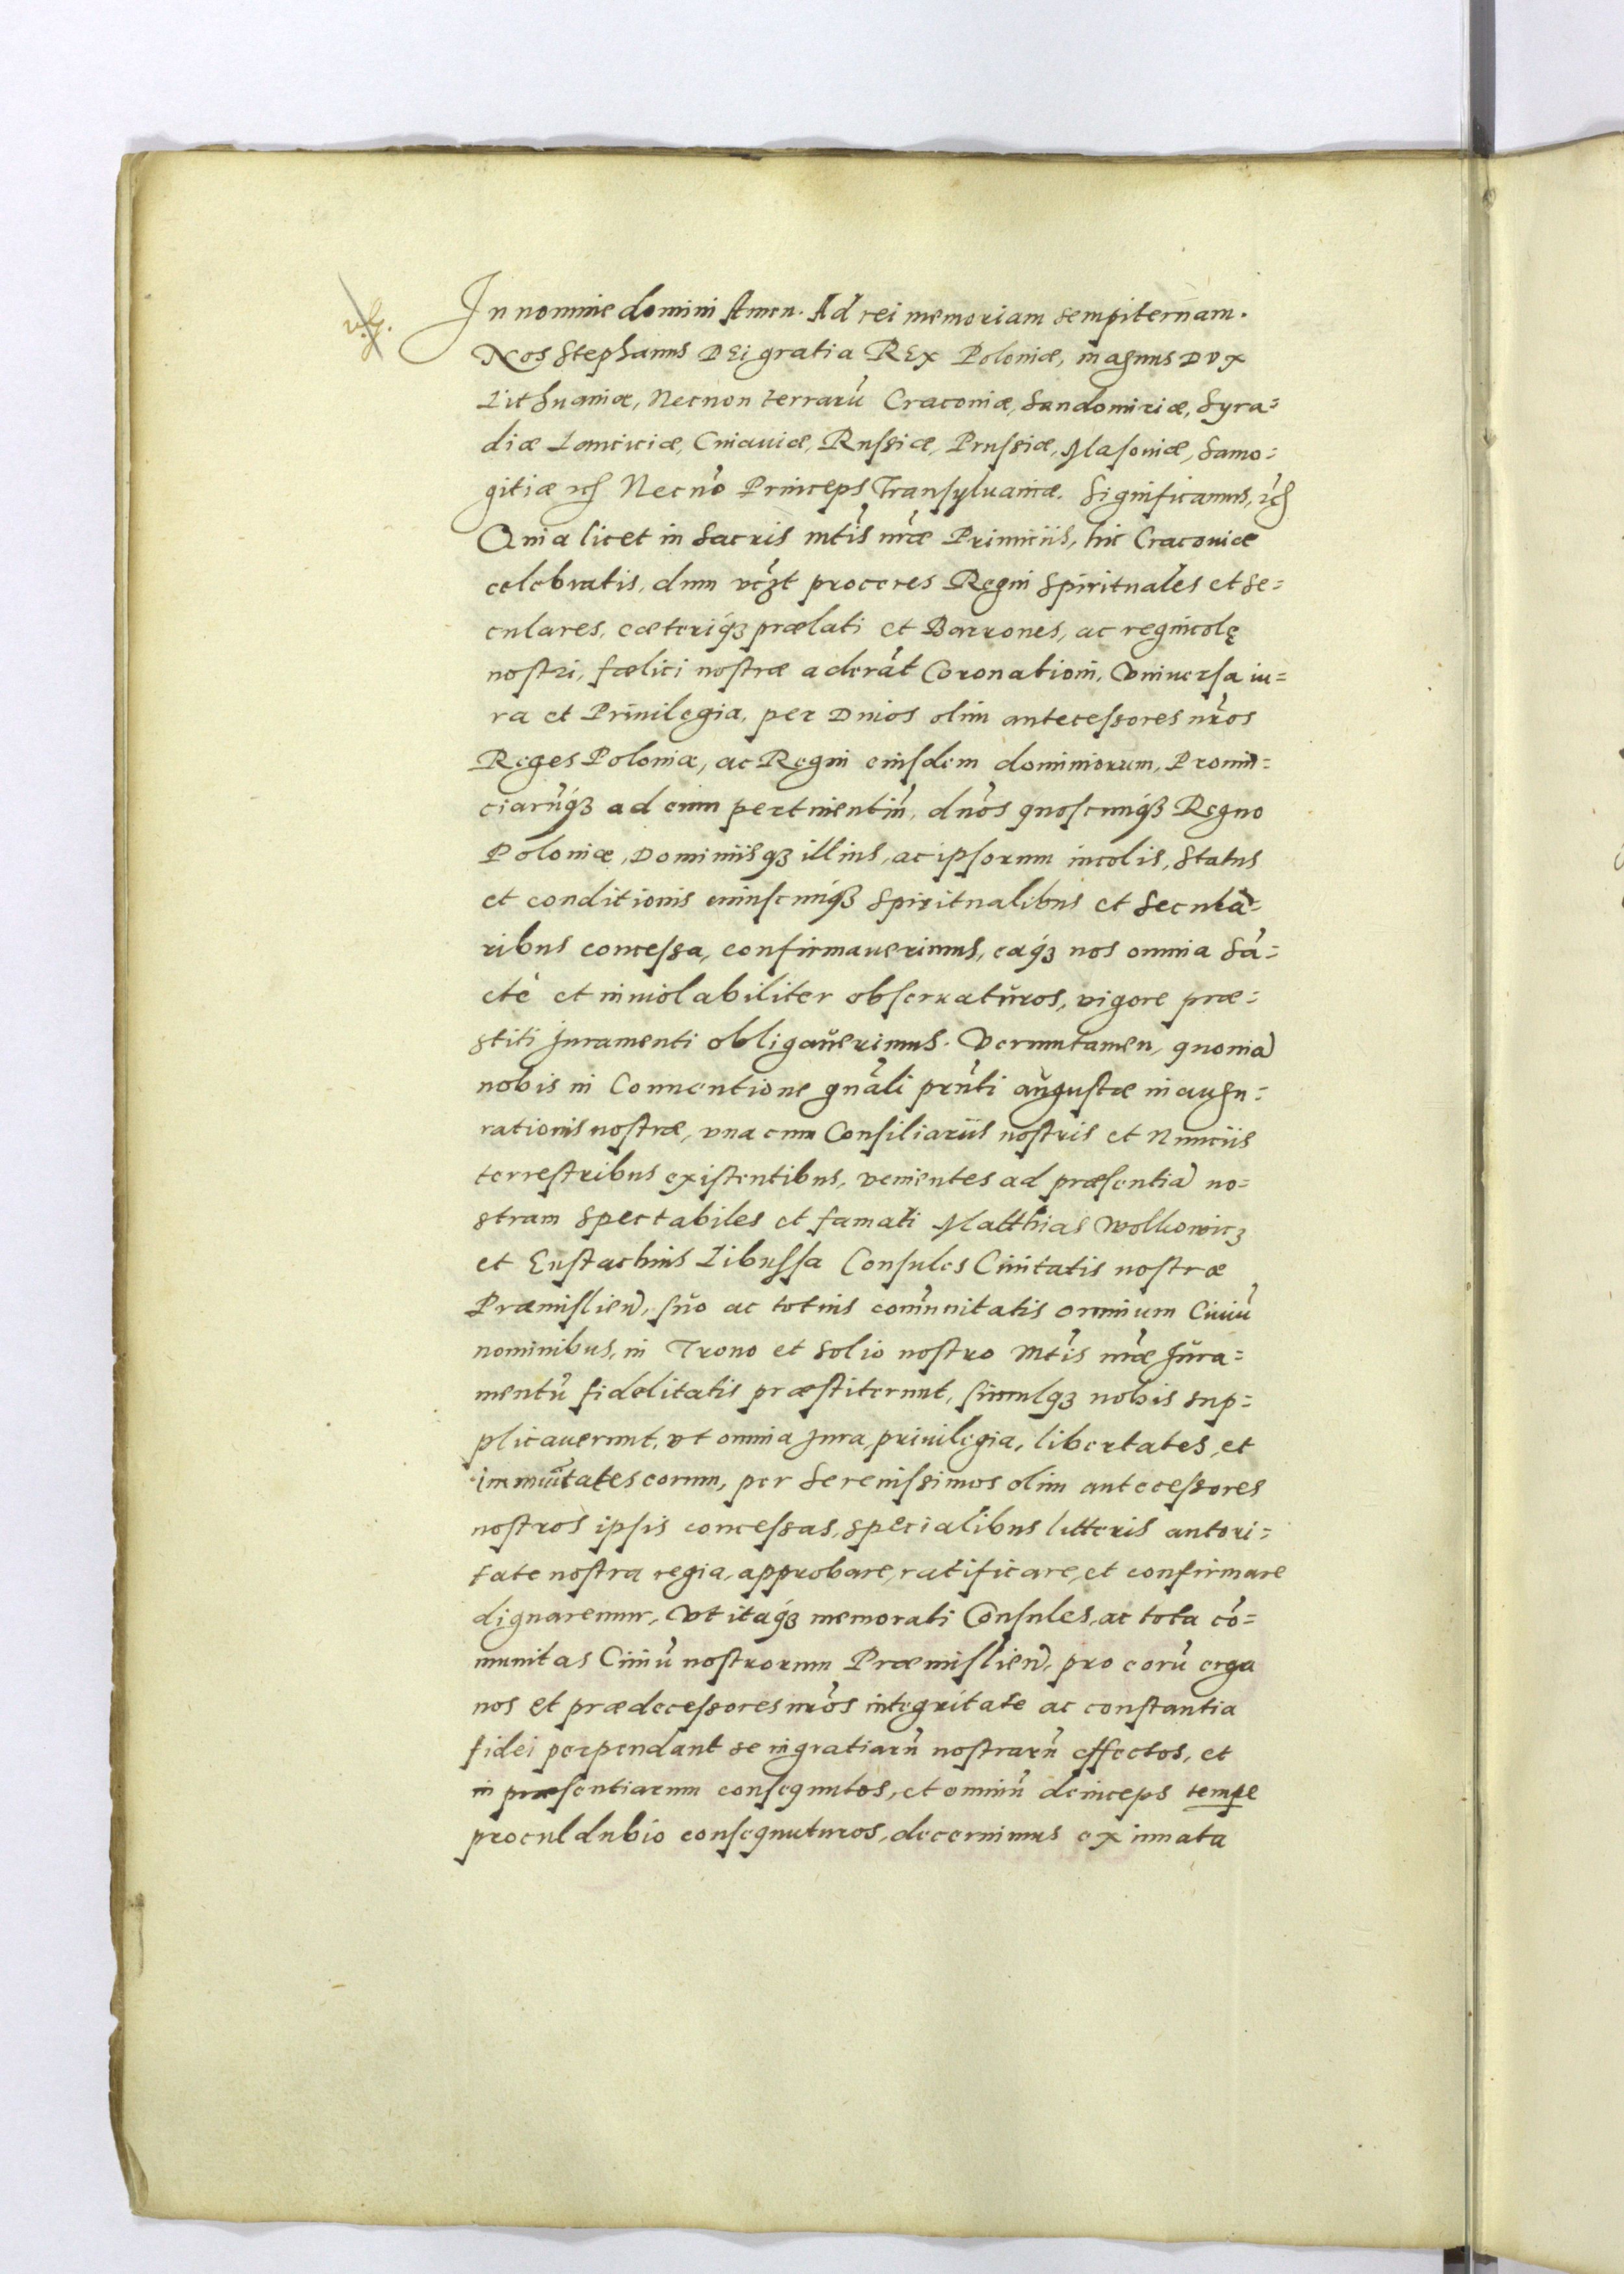 In nomine domini Amen. Ad rei memoriam sempiternam.
Nos Stephanus DEi gratia REx Poloniæ, magnus DVx
Lithuaniæ, Necnon terrarũ Cracouiæ, Sandomiriæ, Syra=
diæ Lanciciæ, Cuiauiæ, Russiæ, Prussiæ, Masouiæ, Samo=
gitiæ etc Necnõ Princeps Transyluaniæ. Significamus, etc
Quia licet in Sacris Mtis nrãe Primiciis, hic Cracouiæ
celebratis, dum vcȝt proceres Regni Spirituales et Se=
culares, cæteriqȝ prælati et Barrones, ac regnicolę
nostri, fælici nostræ aderãt Coronationi, Vniuersa iu=
ra et Priuilegia, per Diuos olim antecessores nrõs
Reges Poloniæ, ac Regni eiusdem dominiorum, Prouin=
ciarũqȝ ad eum pertinentiũ, dnõs quoscunqȝ Regno
Poloniæ, Dominiisqȝ illius, ac ipsorum incolis, Status
et conditionis cuiuscunqȝ Spiritualibus et Secula=
ribus concessa, confirmauerimus, eaqȝ nos omnia Sã=
ctè et inuiolabiliter obseruatŭros, vigore præ=
stiti Juramenti obligaŭerimus. Verumtamen, quoniã
nobis in Conuentione gnãli prñti aŭgustæ inaugu=
rationis nostræ, vna cum Consiliariis nostris et Nunciis
terrestribus existentibus, venientes ad præsentiã no=
stram Spectabiles et famati Matthias Wolkowicz
et Eustachius Libussa Consules Ciuitatis nostræ
Præmislien̄, sŭo ac totius com̃unitatis omnium Ciuiũ
nominibus, in Trono et Solio nostro Mtis nrãe Jŭra=
mentũ fidelitatis præstiterunt, simulqȝ nobis sup=
plicauerunt, vt omnia Jura, priuilegia, libertates, et
immunitates eorum, per Serenissimos olim antecessores
nostros ipsis concessas, specialibus litteris autori=
tate nostra regia, approbare, ratificare, et confirmare
dignaremur, Vt itaqȝ memorati Consules, ac tota cõ=
munitas Ciuiũ nostrorum Præmislien̄, pro eorũ erga
nos et prædecessores nrõs integritate ac constantia
fidei perpendant se in gratiarũ nostrarũ effectos, et
in præsentiarum consequutos, et omniũ deinceps tempe
procul dubio consequuturos, decernimus ex innata